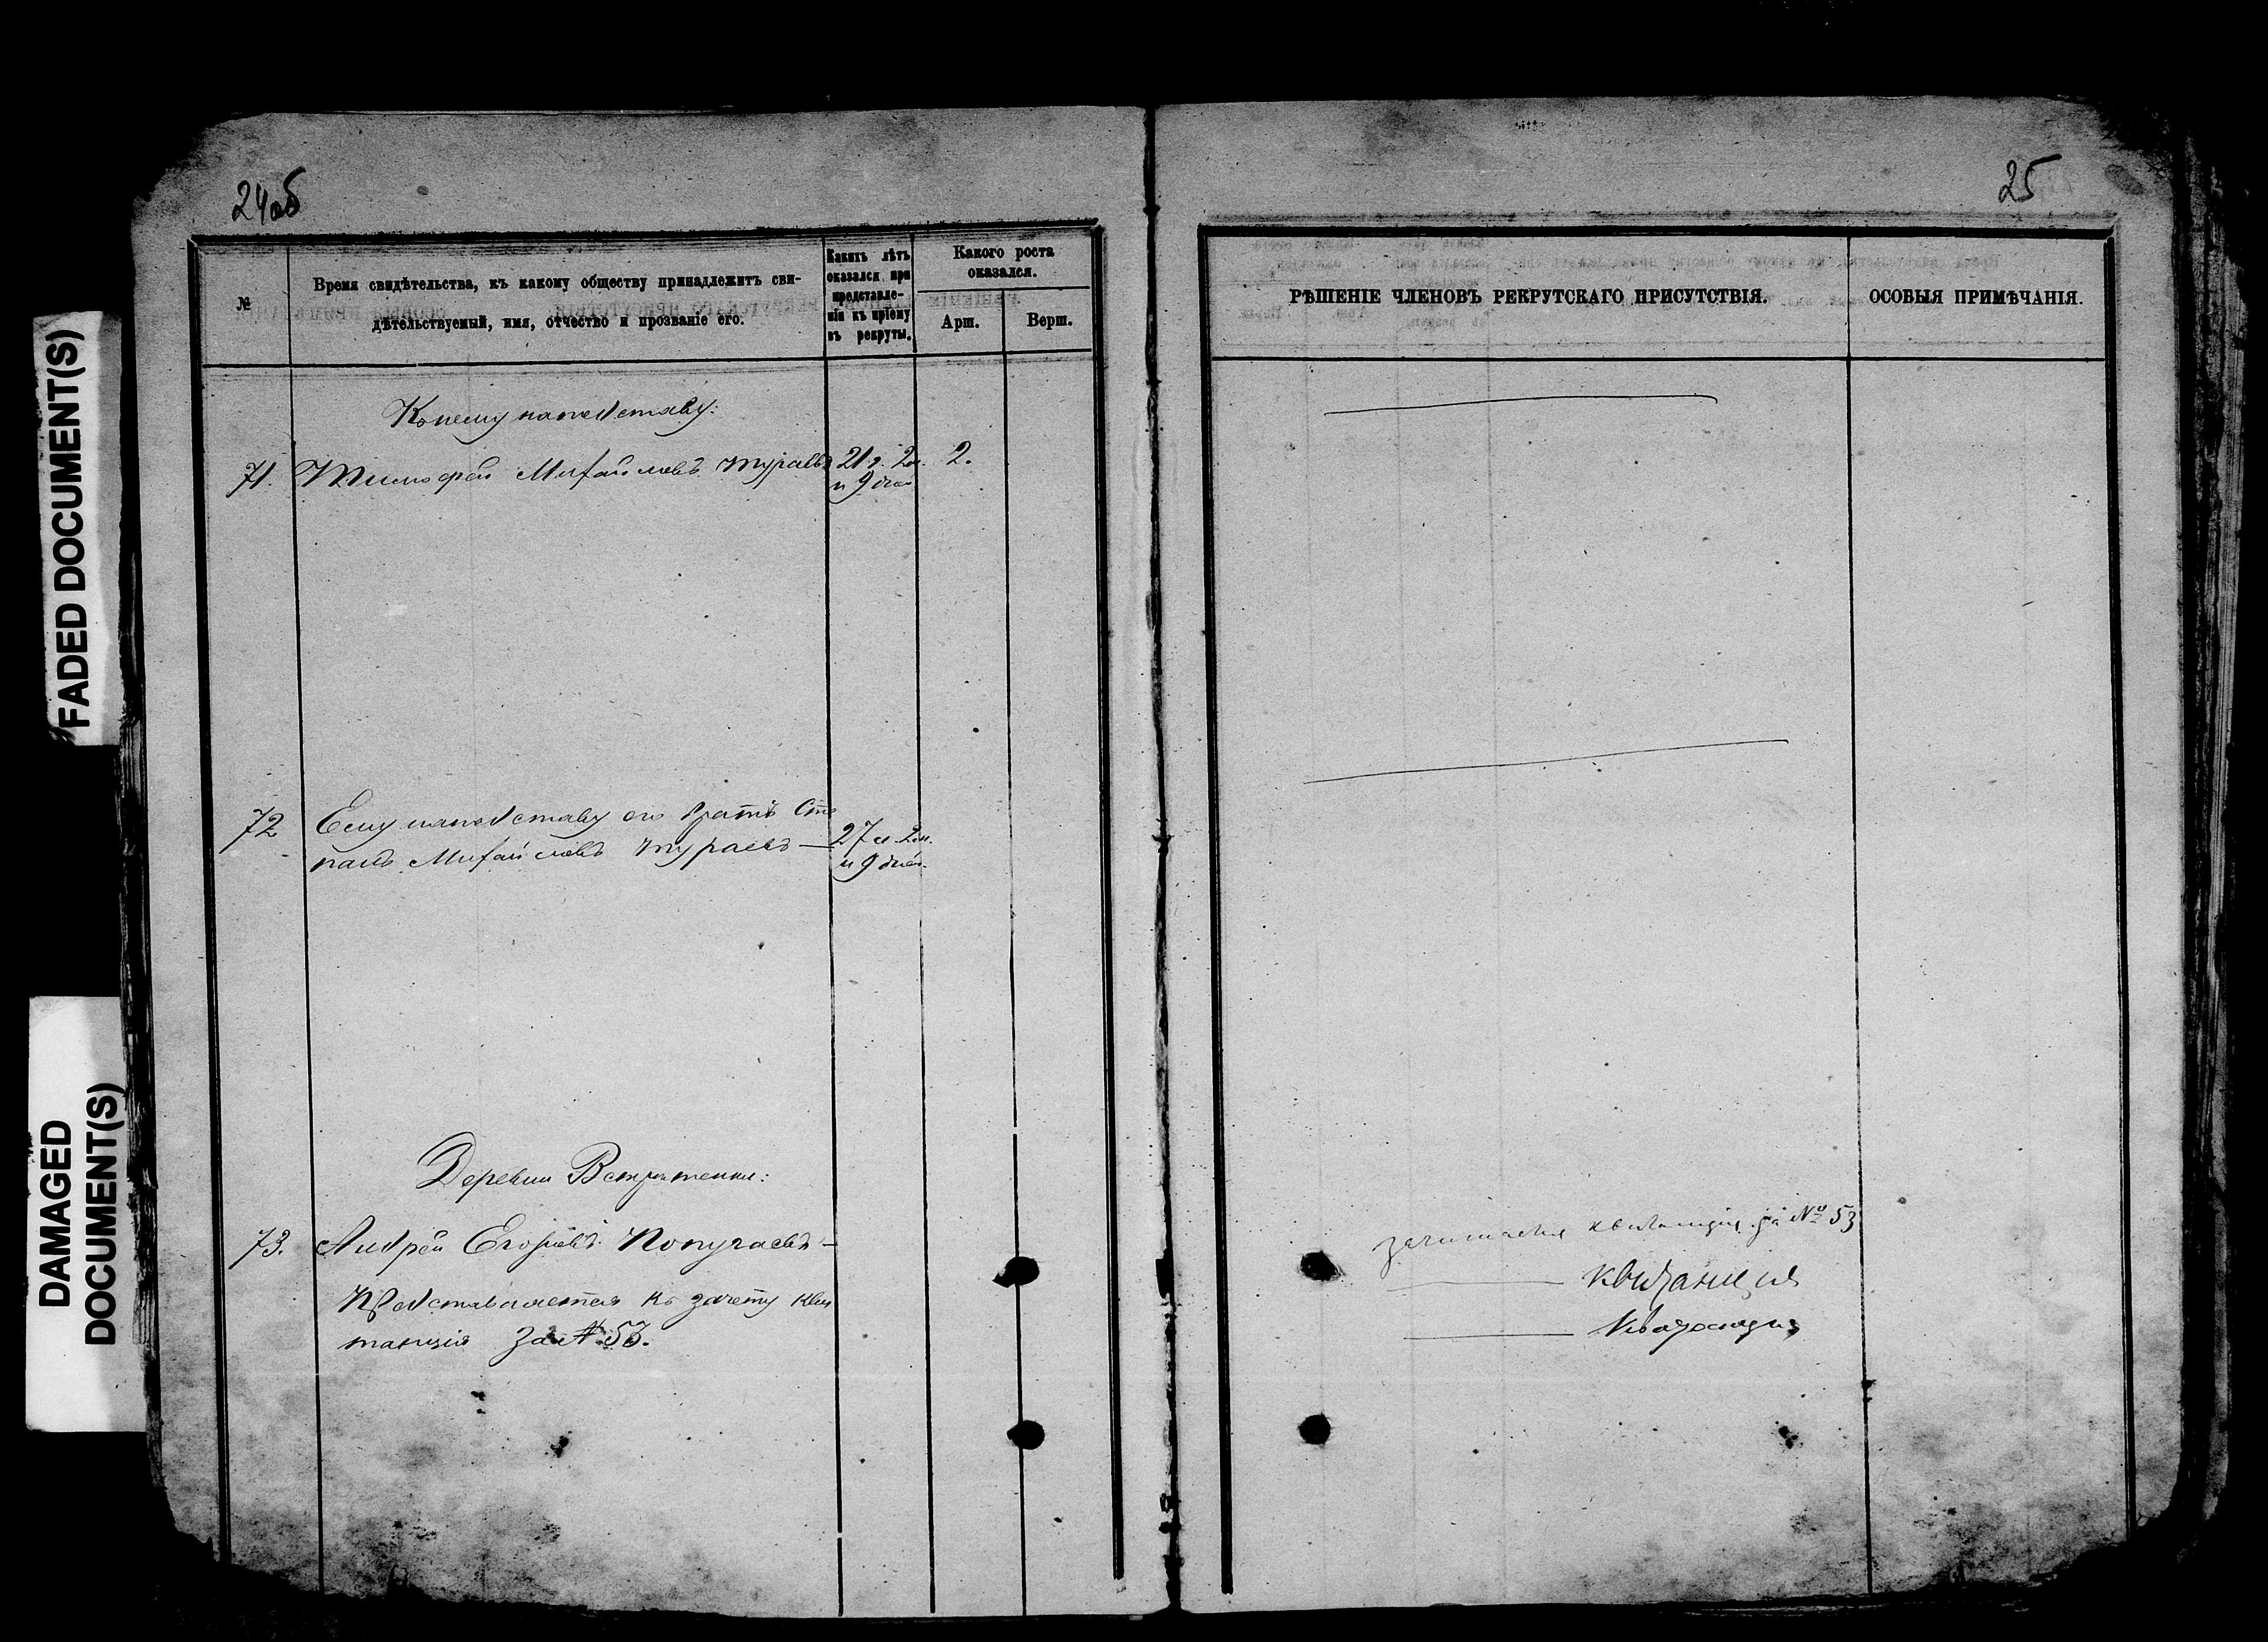 FADED DOCUMENT(S)
DAMAGED
DOCUMENT(S)
24об
№
Время свидѣтельства, къ какому обществу принадлежитъ сви-
дѣтельствуемый, имя, отчество и прозваніе его.
Какихъ лѣтъ
оказался при
представле-
ніи къ пріему
въ рекруты.
Какого роста
оказался.
Арш.
Верш.
Къ нему на подставу:
71. Тимофей Михайловъ Тураевъ 21 г. 2 м. 2.
и 9 дней
72 Ему на подставу его братъ Сте
панъ Михайловъ Тураевъ — 27 л 2 м.
и 9 дней.
Деревни
73. Андрей Егоровъ Попугаевъ —
Представляется къ зачету кви
танція за № 53.
25
РѢШЕНІЕ ЧЛЕНОВЪ РЕКРУТСКАГО ПРИСУТСТВІЯ.
ОСОБЫЯ ПРИМѢЧАНІЯ.
зачитается квитанція за № 53
— квитанция
—